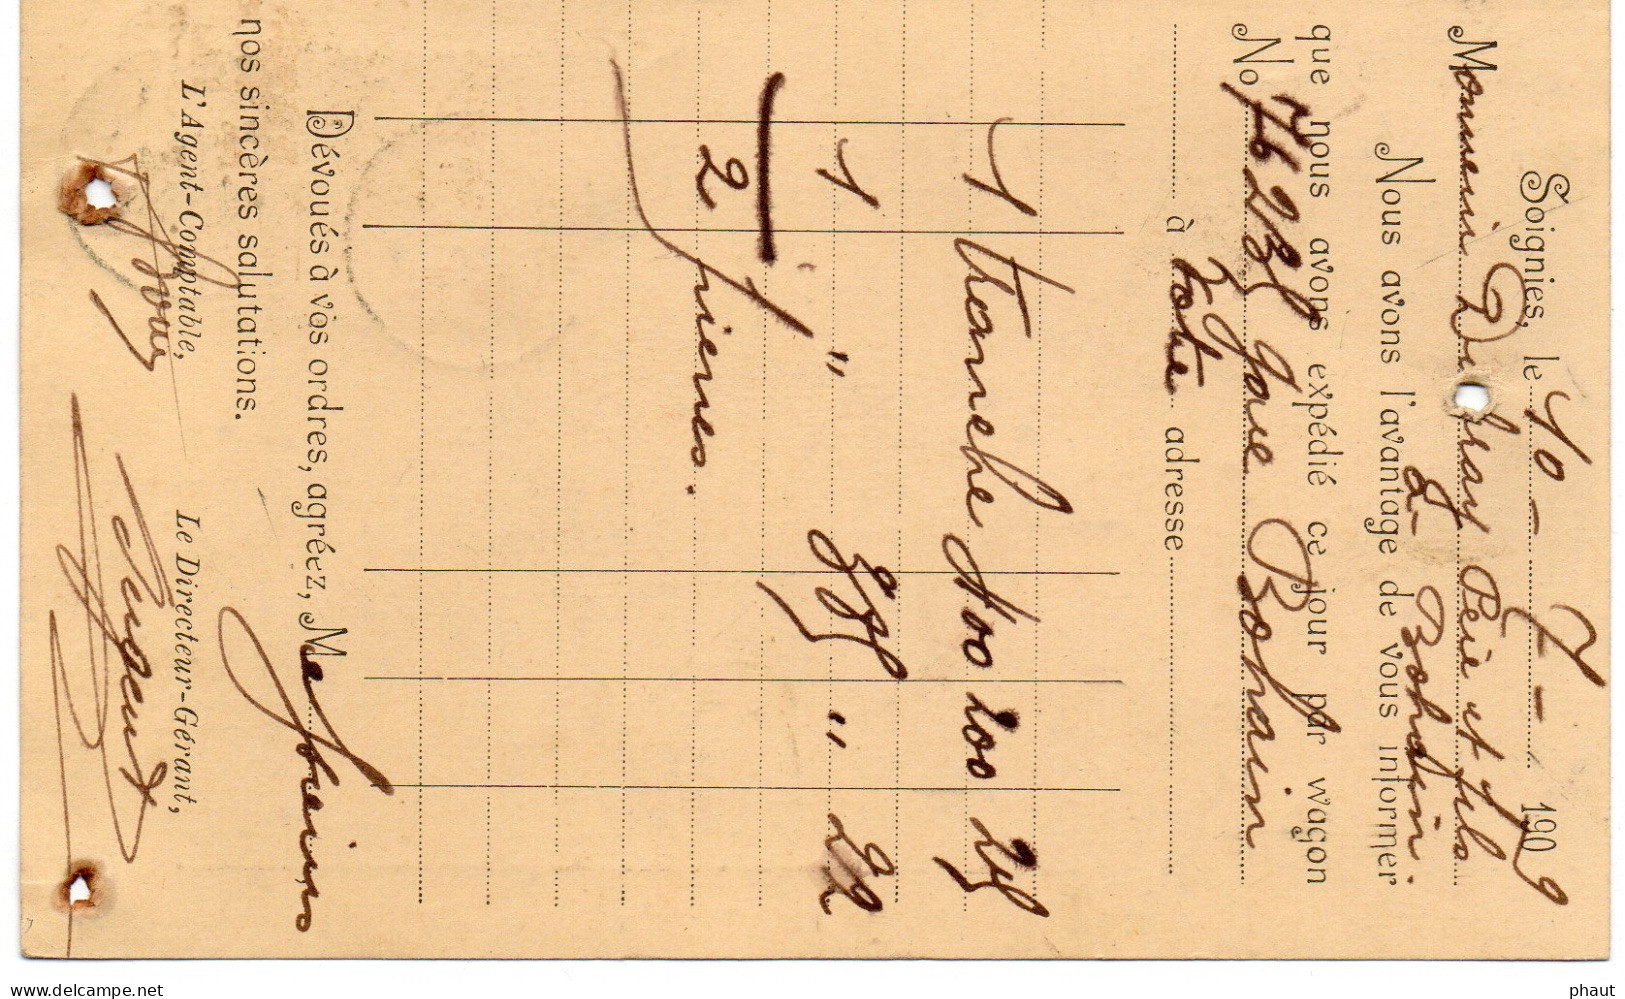 Soignies, le 10 - 7 - 1909
Monsieur Du fray Père et fils
à Bohain.
Nous avons l'avantage de vous informer
que nous avons expédié ce jour par wagon
No 76238 Gare Bohain
à Votre adresse
1 tranche 400 200 25
1 " " 22
2 pierres.
Dévoués à vos ordres, agréez, Messieurs
nos sincères salutations.
L'Agent-Comptable, Le Directeur-Gérant,
www.delcampe.net phaut